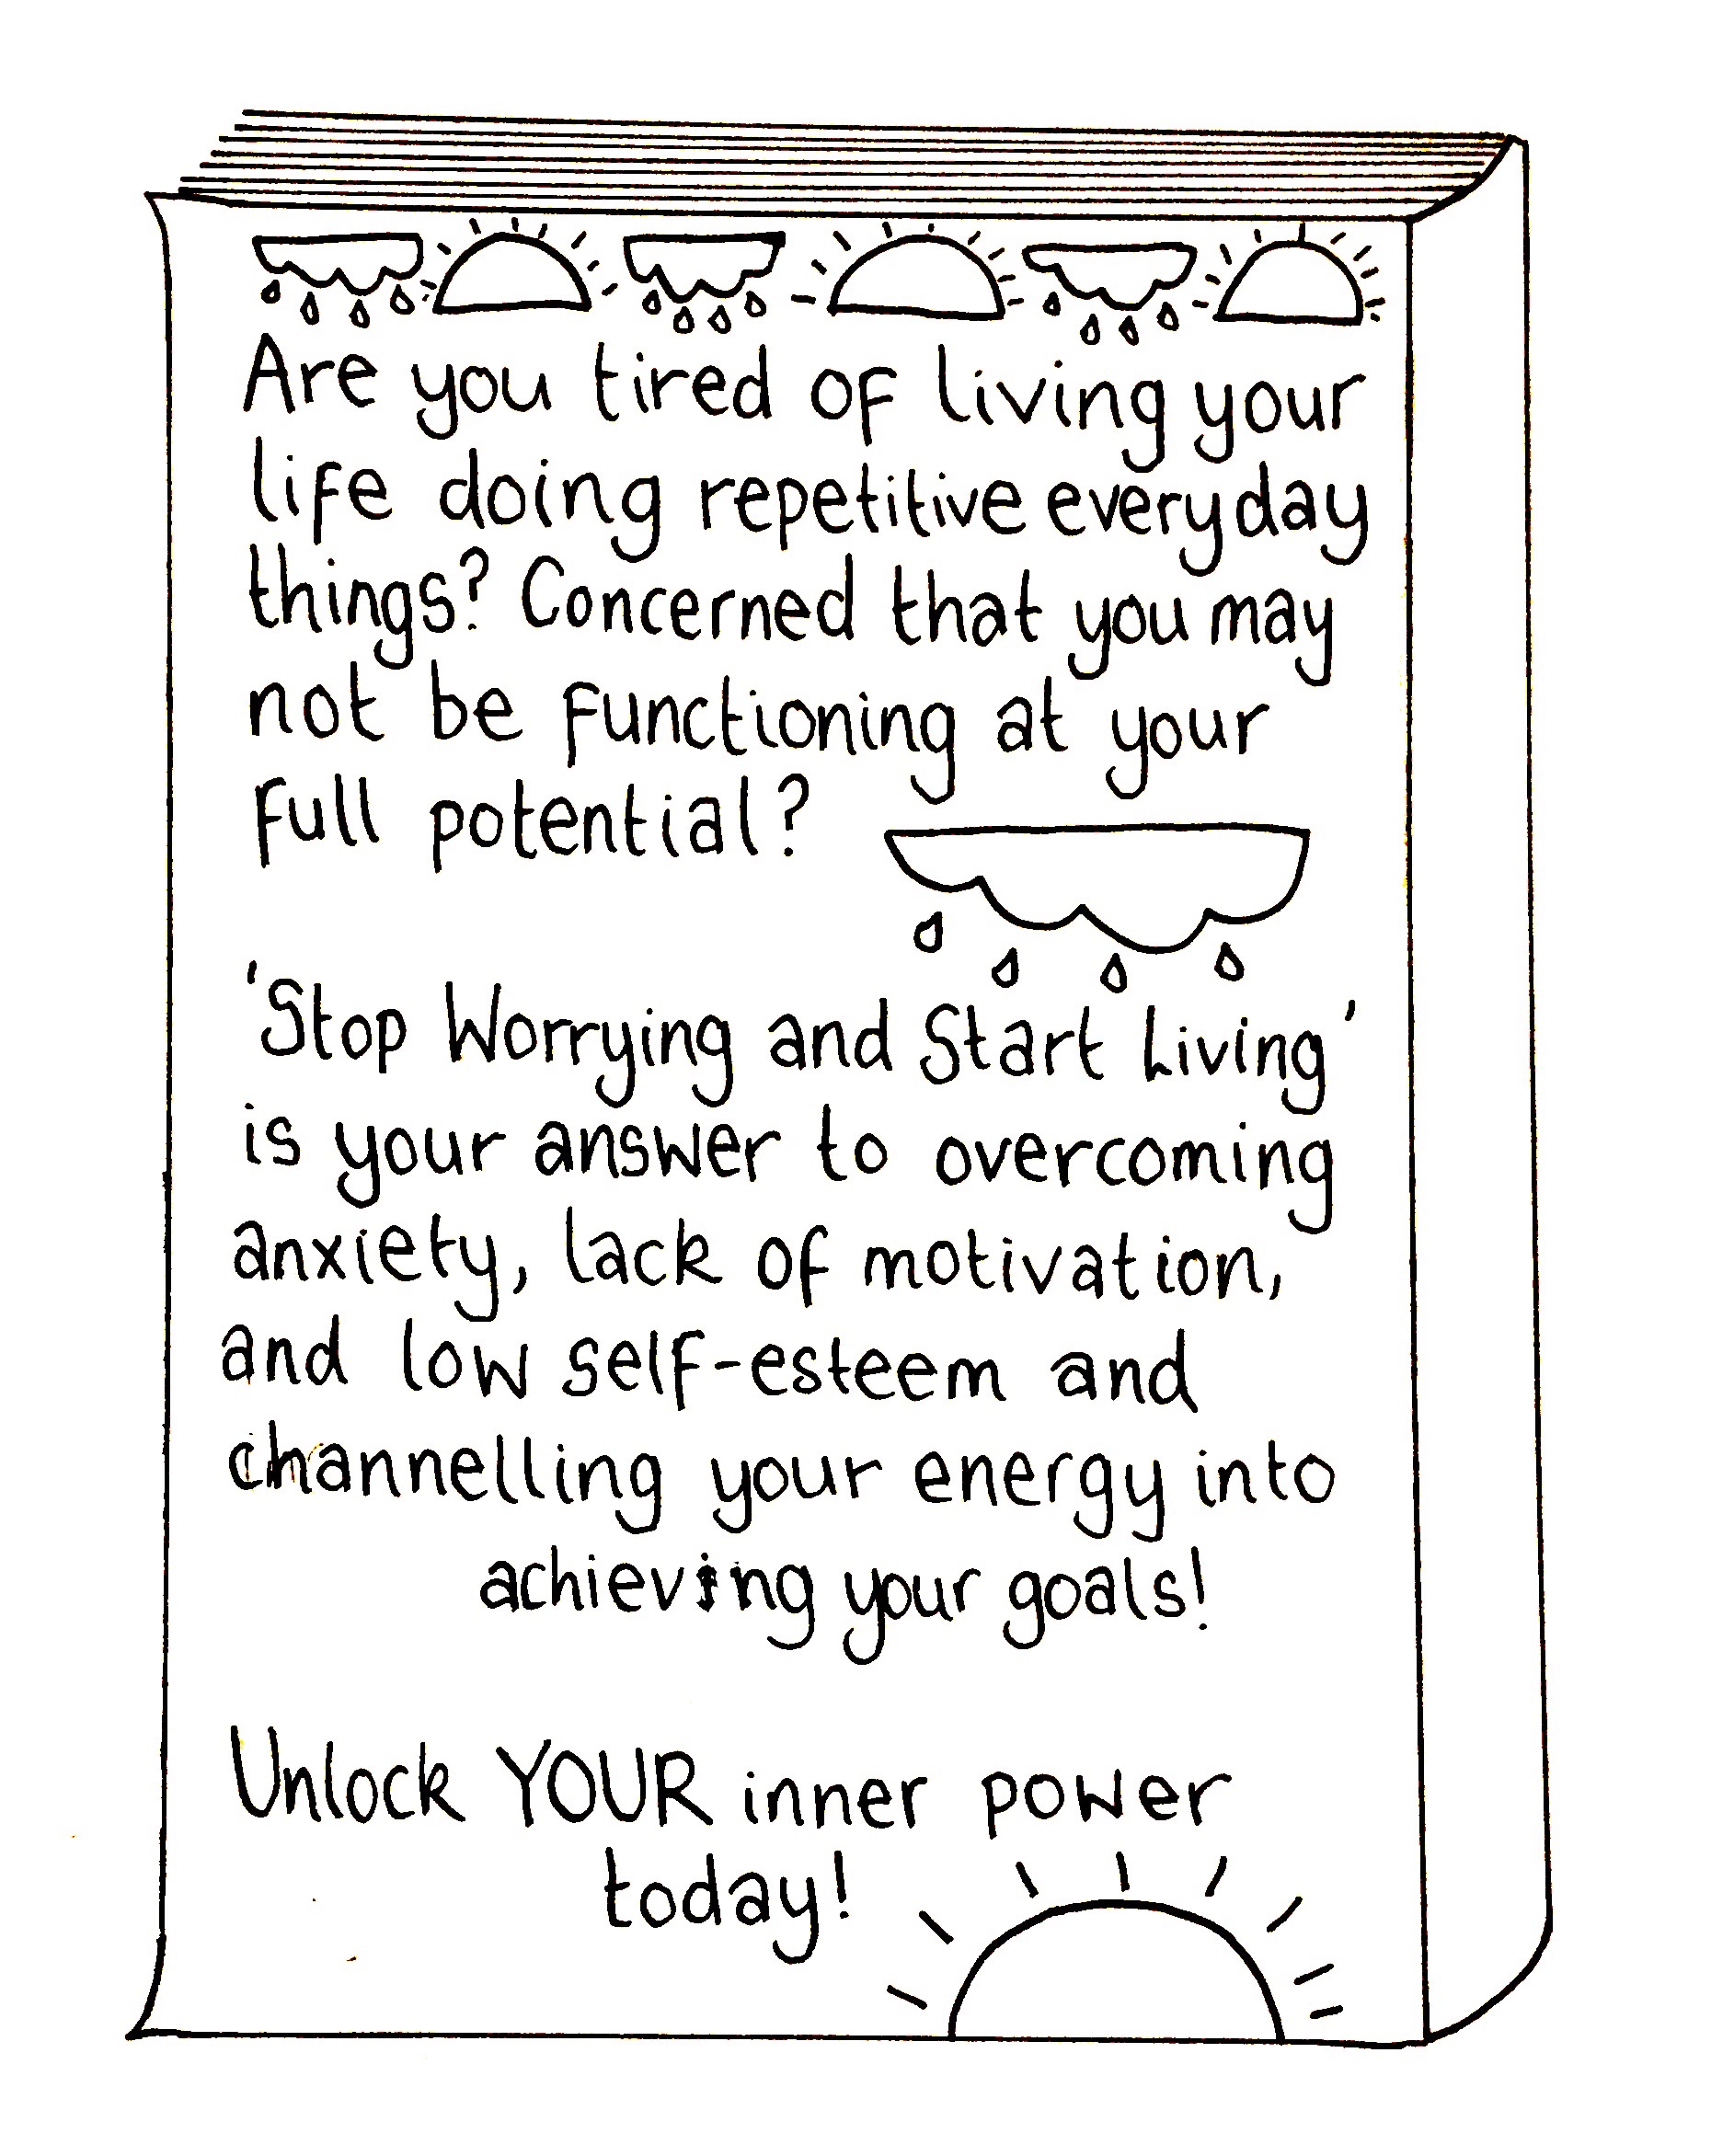 Are you tired of living your
life doing repetitive everyday
things? Concerned that you may
not be functioning at your
full potential?
'Stop Worrying and Start Living'
is your answer to overcoming
anxiety, lack of motivation,
and low self-esteem and
channelling your energy into
achieving your goals!
Unlock YOUR inner power
today!